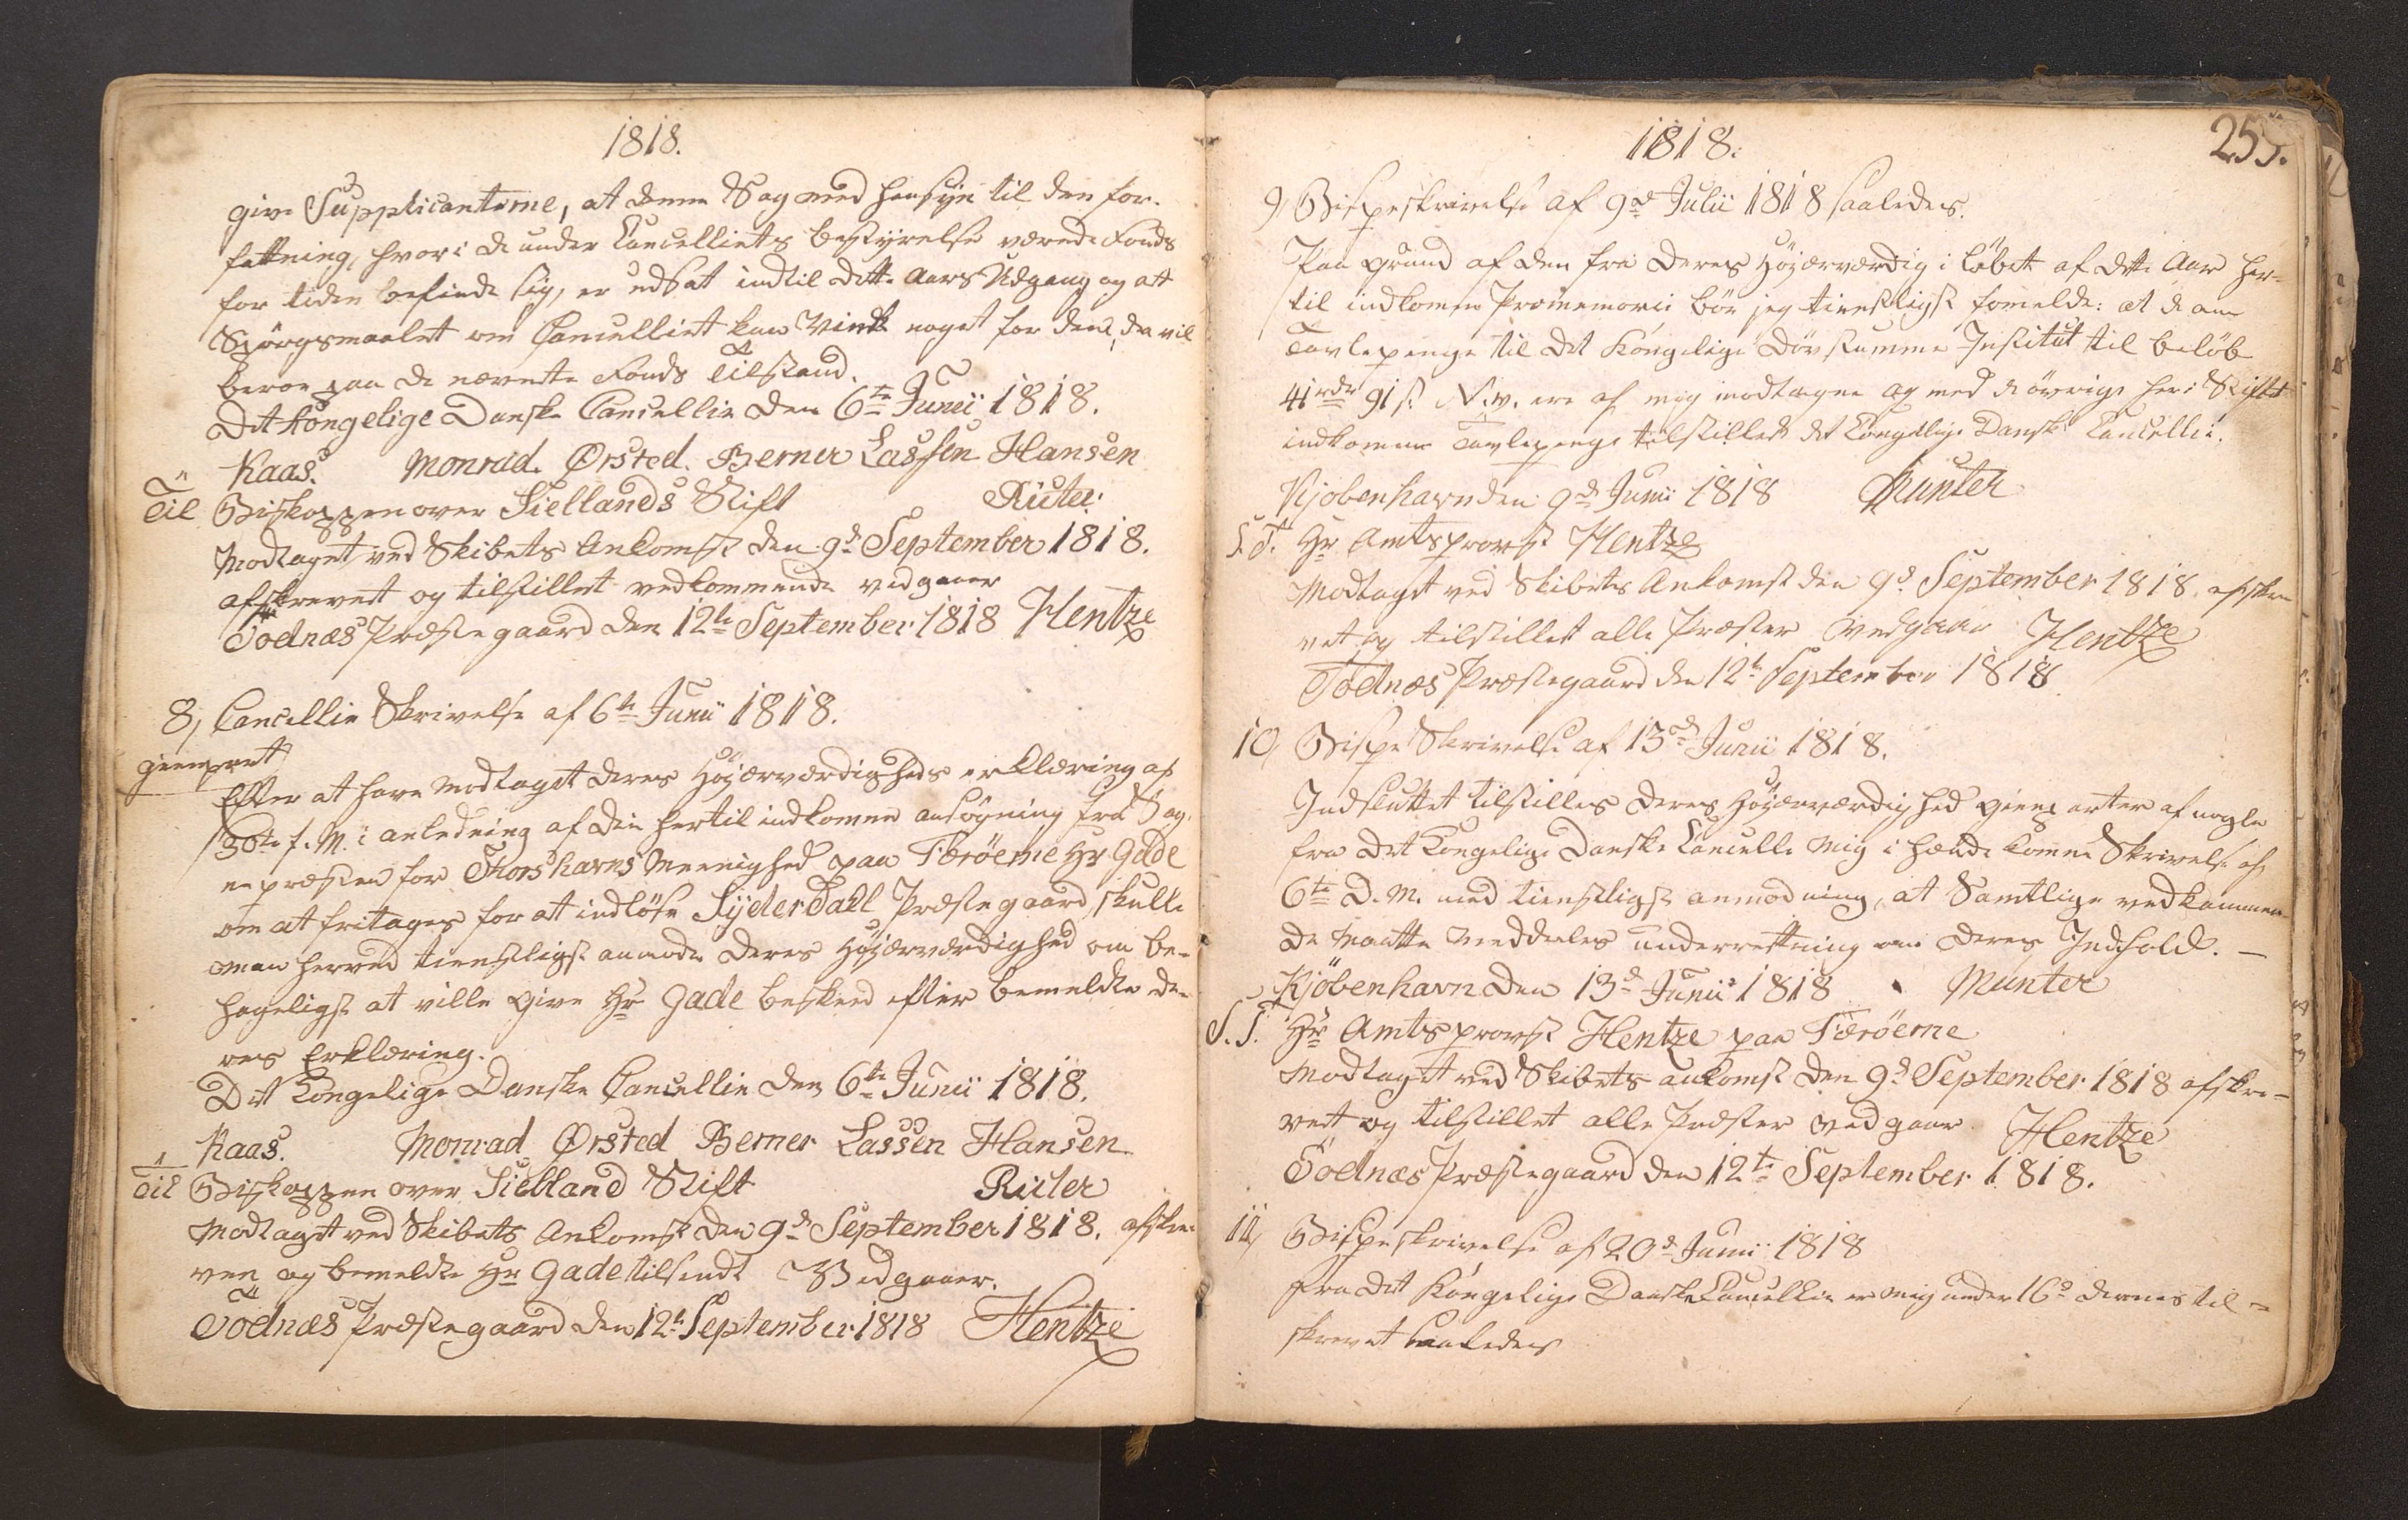 1818.
give Supplicanterne, at denne Sag med hensyn til den for-
fattning, hvori de under Cancelliets bestyrelse værende Fonds
for tiden befinde sig, er udsat indtil dette Aars Udgang og att
Spørgsmaalet om Cancelliet kan virke noget for dem, da vil
beroe paa de nævnte Fonds Tilstand.
Det Kongelige Danske Cancellie den 6te Junii 1818.
Kaas. Monrad. Ørsted. Berner Lassen Hansen
Til Biskoppen over Siellands Stift Rüter.
Modtaget ved Skibets Ankomst den 9d September 1818.
afskrevet og tilstillet vedkommende vedgaaer
Todnæs Præstegaard den 12te September 1818 Hentze
8, Cancellie Skrivelse af 6te Junii 1818.
gienpart
Efter at have modtaget Deres Høiærværdigheds erklæring af
30te f. M. i anledning af den hertil indkomne ansøgning fra Sog-
nepræsten for Thorshavns Meenighed paa Færöerne Hr Gade
om at fritages for at indløse Syderdahl Præstegaard, skulle
man herved tienstligst anmode Deres Høiærværdighed om be-
hageligst at ville give Hr Gade besked efter bemeldte De-
res Erklæring.
Det Kongelige Danske Cancellie den 6te Junii 1818.
Kaas. Monrad Ørsted Berner Lassen Hansen
Til Biskoppen over Sielland Stift Rüter
Modtaget ved Skibets Ankomst den 9d September 1818. afskre-
ven og bemeldte Hr Gade tilsendt Vedgaaer.
Todnæs Præstegaard den 12te September 1818 Hentze
1818. 255.
9, Bispeskrivelse af 9d Julii 1818 saaledes.
Paa Grund af den fra Deres Høiærværdig i løbet af dette Aar her-
til indkomne Promemorii bör jeg tienstligst formelde: at de om
Tavlepenge til det Kongelige Dövstumme Institut til beløb
41 rdr 91 s. N.v. ere af mig modtagne og med de øvrige her i Stiftet
indkomne Tavlepenge tilstillet det Kongelige Danske Cancellie.
Kjøbenhavn den 9d Junii 1818 Munter
S.T. Hr Amtsprovst Hentze
Modtaget ved Skibets Ankomst den 9d September 1818. afskre
vet og tilstillet alle Præster vedgaaer Hentze
Todnæs Præstegaard den 12te September 1818
10, Bispe Skrivelse af 13de Junii 1818.
Indsluttet tilstilles Deres Høiærværdighed gienparter af nogle
fra det Kongelige Danske Cancelle mig i hænde komne Skrivelse af
6te D. M. med tienstligst anmodning, at Samtlige vedkommen-
de maatte meddeeles underrettning om deres Indhold. —
Kjöbenhavn den 13d Junii 1818 Munter
S.T. Hr Amtsprovst Hentze paa Færöerne
Modtaget ved Skibets ankomst den 9d September 1818 afskre-
vett og tilstillet alle Præster vedgaaer Hentze
Todnæs Præstegaard den 12te September 1818.
11, Bispeskrivelse af 20d Junii 1818
Fra det Kongelige Danske Cancellie er mig under 16d dennes til-
skrevet saaledes